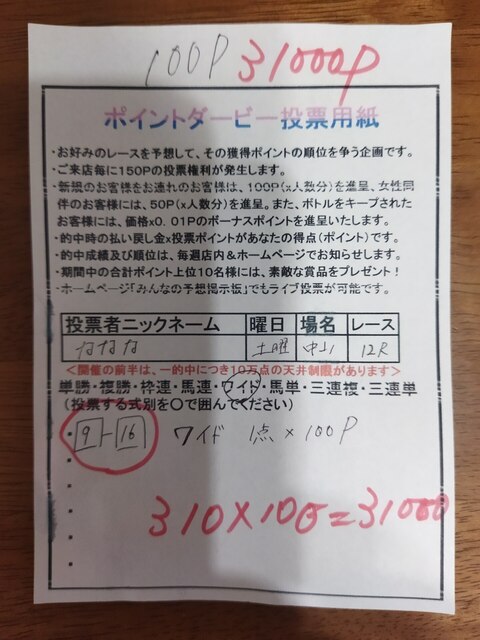 100P 31000P
ポイントダービー投票用紙
・お好みのレースを予想して、その獲得ポイントの順位を争う企画です。
・ご来店毎に150Pの投票権利が発生します。
・新規のお客様をお連れのお客様は、100P(x人数分)を進呈、女性同
伴のお客様には、50P(x人数分)を進呈。また、ボトルをキープされた
お客様には、価格x0.01Pのボーナスポイントを進呈いたします。
・的中時の払い戻し金x投票ポイントがあなたの得点(ポイント)です。
・的中成績及び順位は、毎週店内&ホームページでお知らせします。
・期間中の合計ポイント上位10名様には、素敵な賞品をプレゼント!
・ホームページ「みんなの予想掲示板」でもライブ投票が可能です。
投票者ニックネーム 曜日 場名 レース
ななな 土曜 中山 12R
<開催の前半は、一的中につき10万点の天井制限があります>
単勝・複勝・枠連・馬連・ワイド・馬単・三連複・三連単
(投票する式別を〇で囲んでください)
・9-16 ワイド 1点×100P
310×100=31000